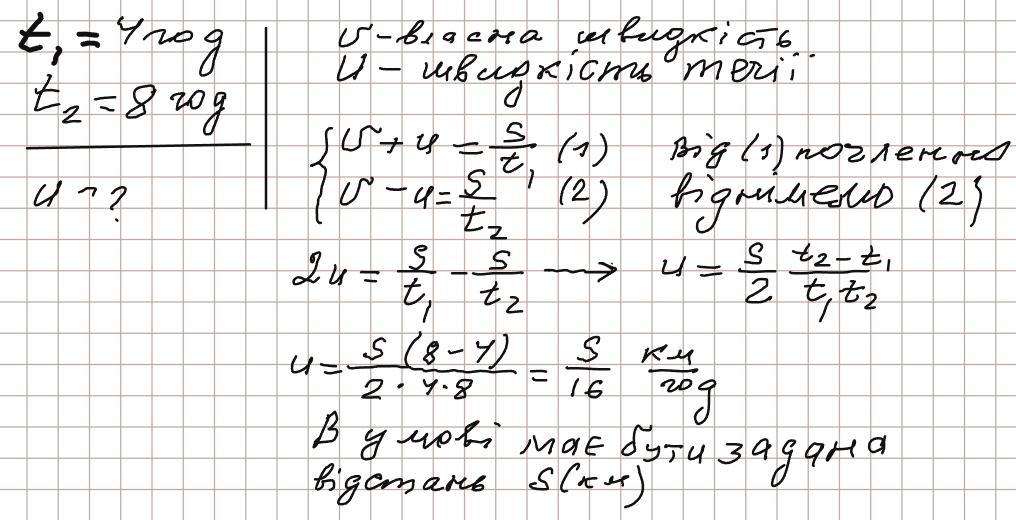 t₁ = 4 год
t₂ = 8 год
u - ?
v - власна швидкість
u - швидкість течії
{ v + u = s/t₁ (1)
v - u = s/t₂ (2)
Від (1) почленно
віднімемо (2)
2u = s/t₁ - s/t₂ ⟶ u = s/2 (t₂ - t₁)/(t₁ t₂)
u = s (8 - 4)/(2 · 4 · 8) = s/16 км/год
В умові має бути задана
відстань s (км)